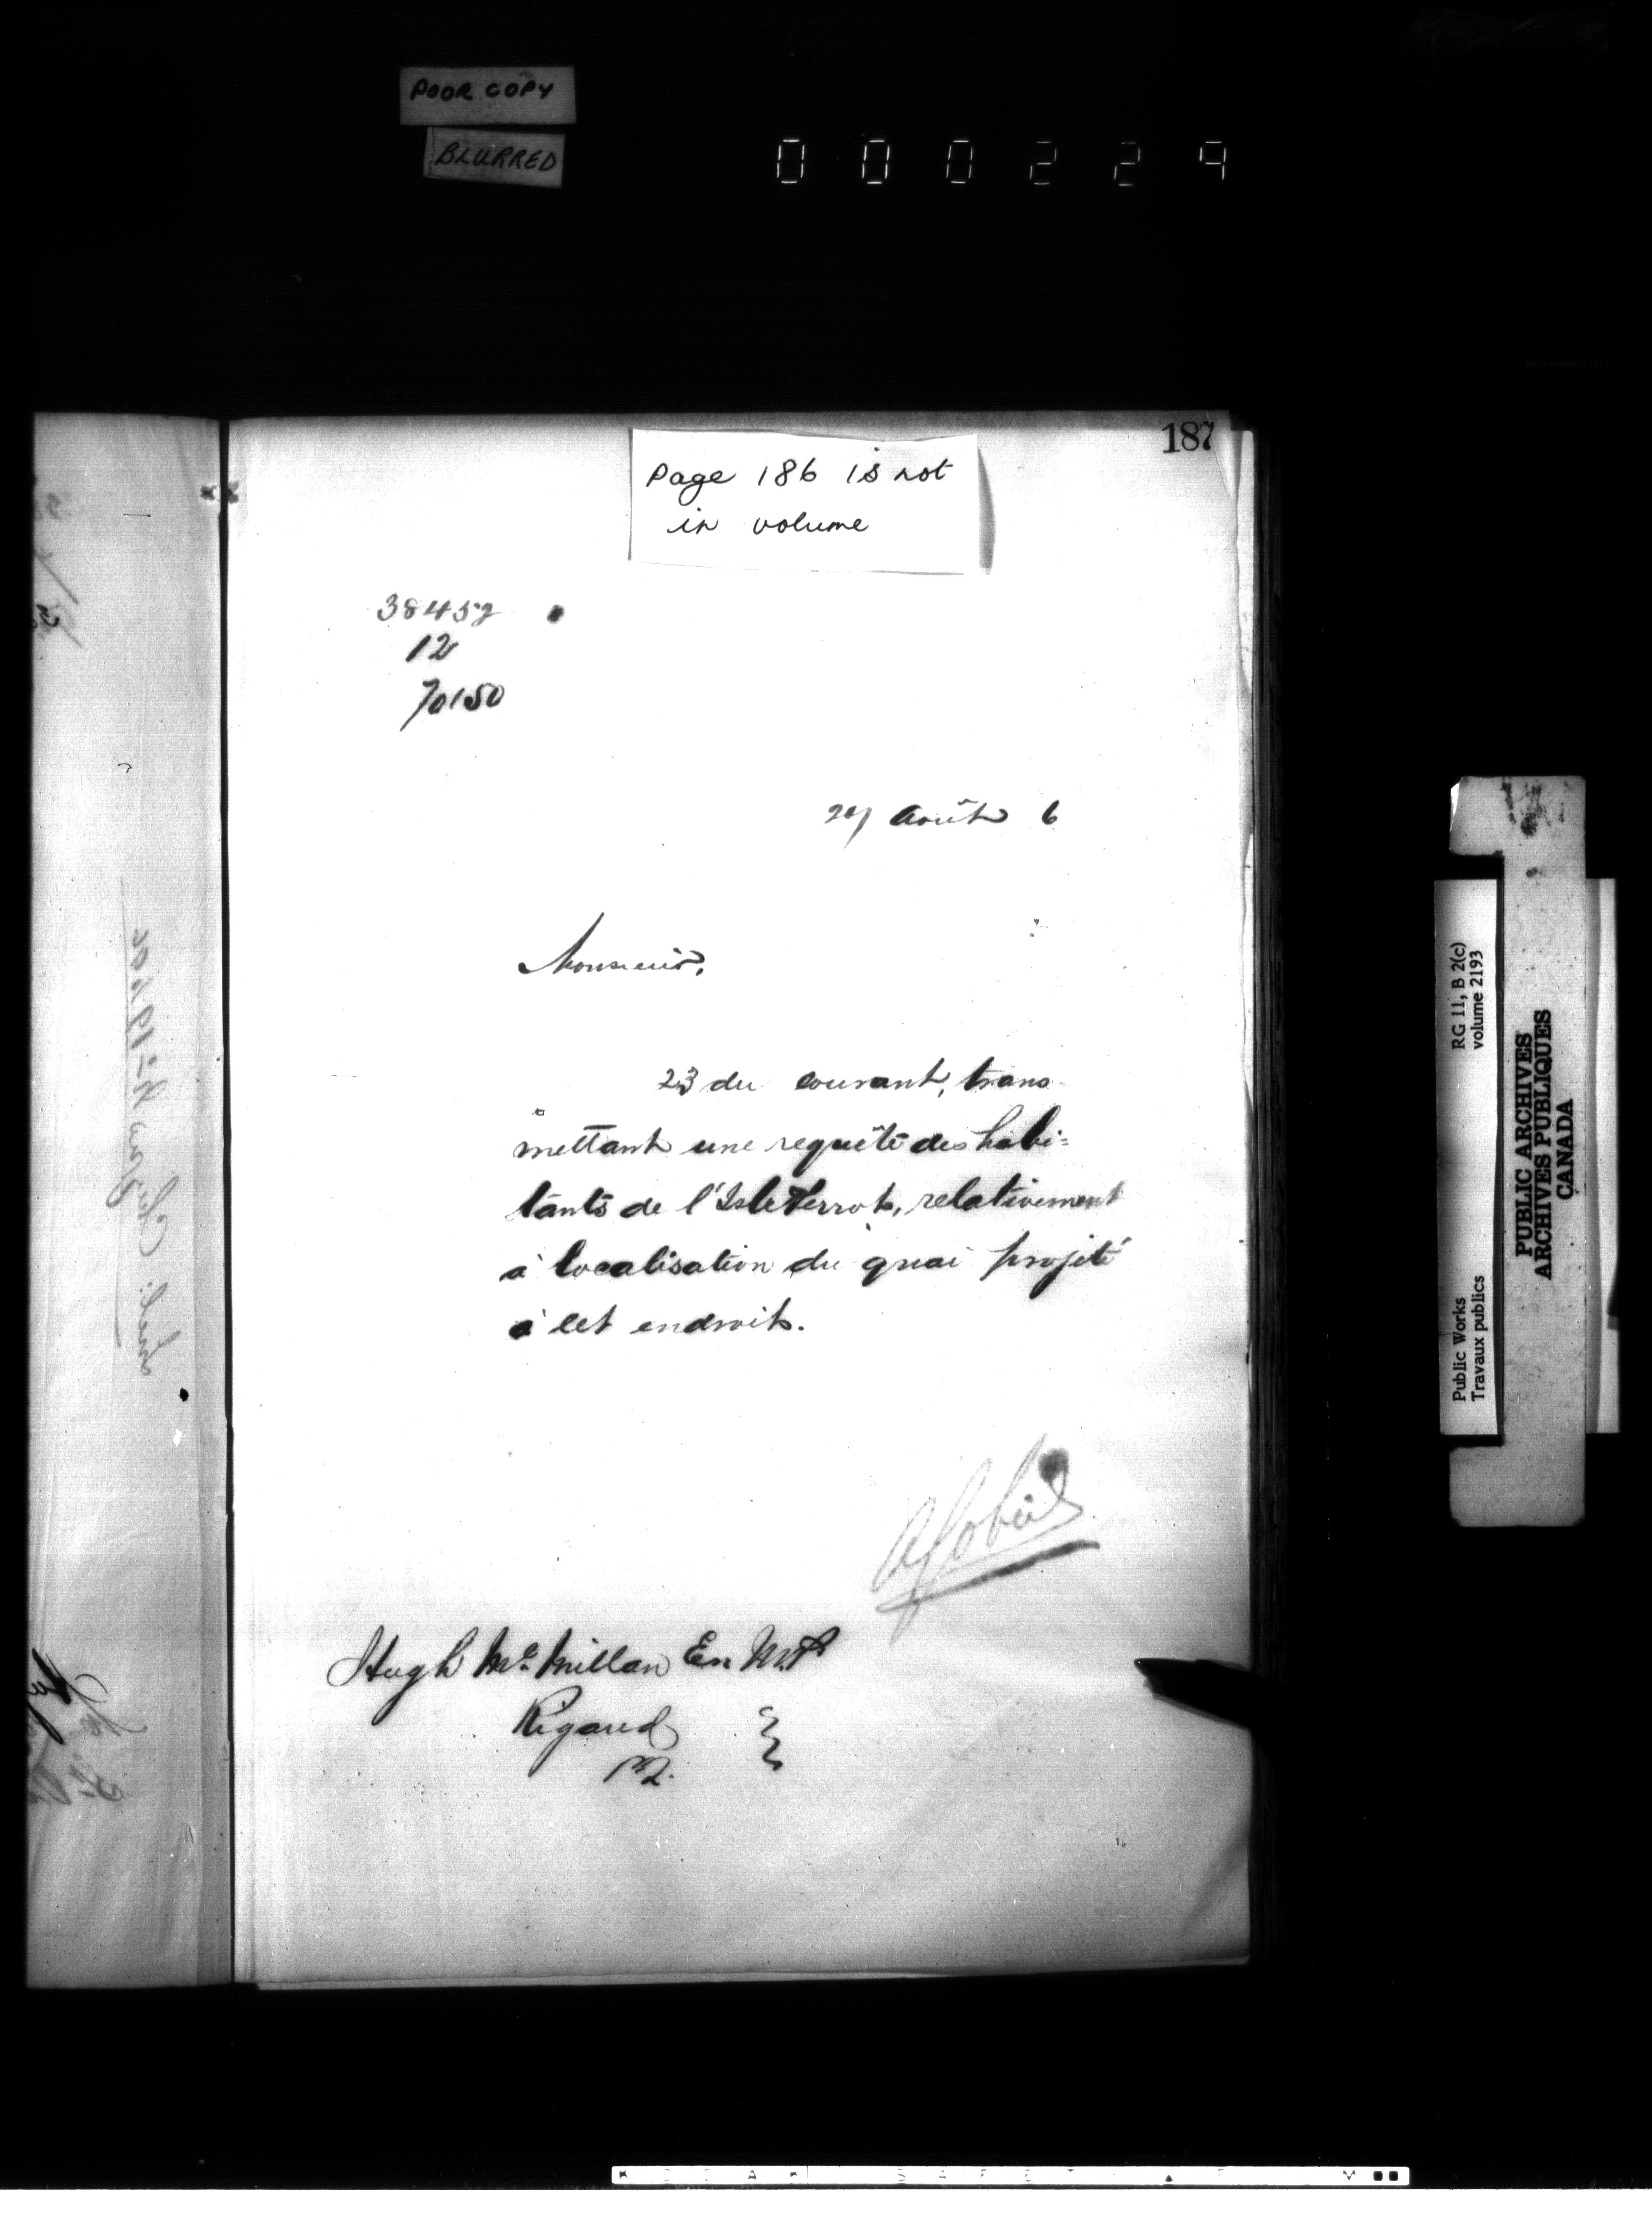 POOR COPY
BLURRED
000229
187
Page 186 is not
in volume
38452
12
70150
27 Août 6
Monsieur,
23 du courant, trans-
mettant une requête des habi=
tants de l'Isle Perrot, relativement
à localisation du quai projeté
à cet endroit.
AGobeil
Hugh Mc Millan Er M.P
Rigaud
P2.
RG 11, B 2(c)
volume 2193
Public Works
Travaux publics
PUBLIC ARCHIVES
ARCHIVES PUBLIQUES
CANADA